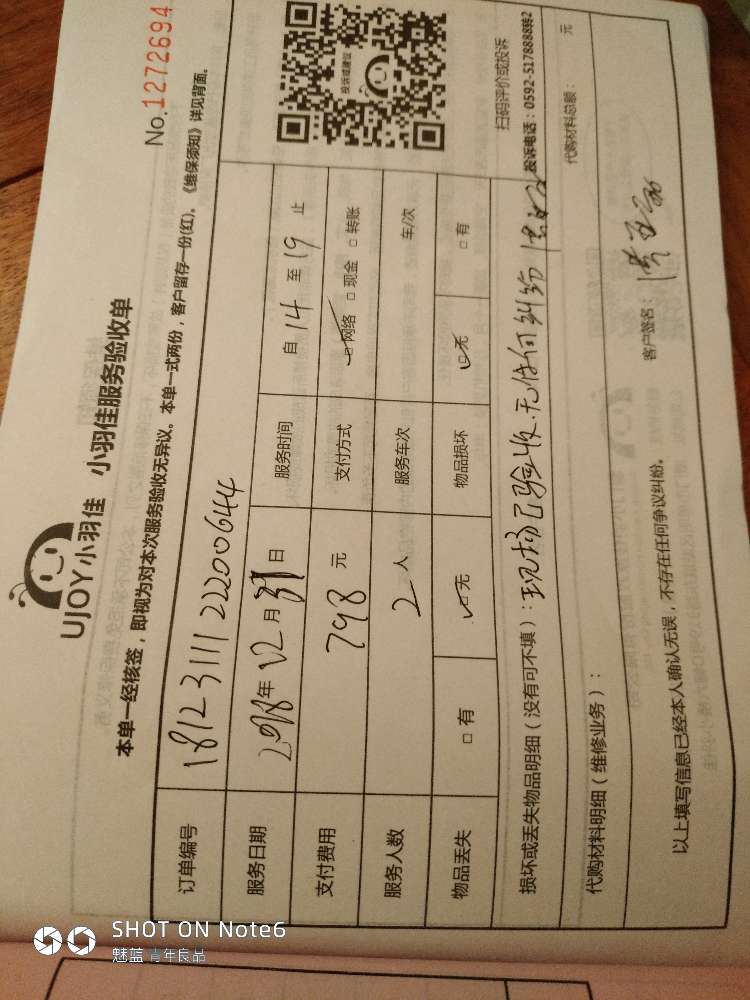 No.1272694
UJOY小羽佳 小羽佳服务验收单
本单一经核签，即视为对本次服务验收无异议。本单一式两份，客户留存一份(红)。《维保须知》详见背面。
订单编号 1812311122200644
投诉或建议
服务日期 2018年12月31日 服务时间 自14至19止
支付费用 798元 支付方式 网络 现金 转账
服务人数 2人 服务车次 车/次
物品丢失 有 无 物品损坏 无 有
扫码评价或投诉
投诉电话：0592-5178888转2
损坏或丢失物品明细（没有可不填）：现场已验收.无任何纠纷
代购材料明细（维修业务）： 代购材料总额： 元
以上填写信息已经本人确认无误，不存在任何争议纠纷。 客户签名：
SHOT ON Note6
魅蓝 青年良品